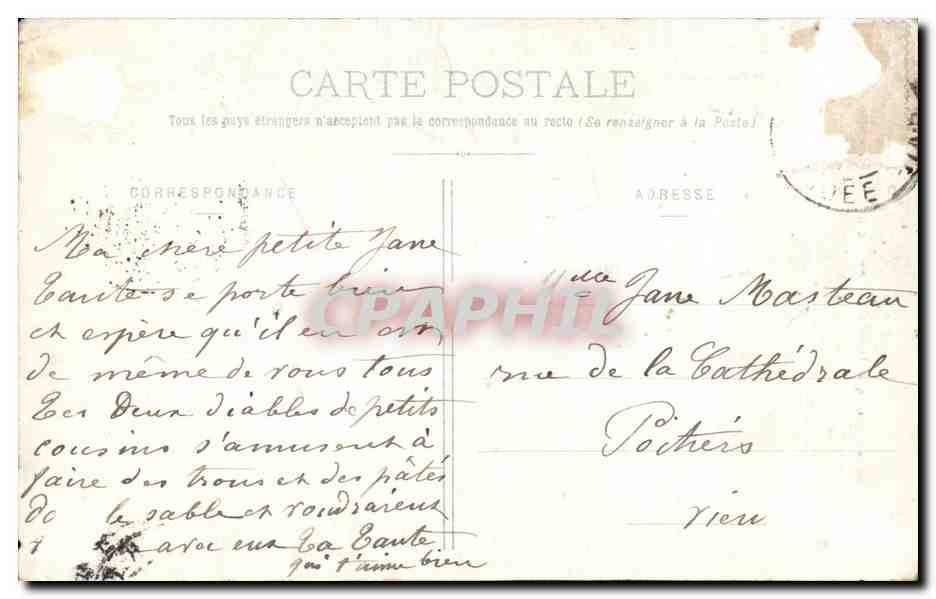 CARTE POSTALE
Tous les pays étrangers n'acceptent pas la correspondance au recto (Se renseigner à la Poste)
CORRESPONDANCE
Ma chère petite Jane
Tante se porte bien
et espère qu'il en est
de même de vous tous
Tes Deux diables de petits
cousins s'amusent à
faire des trous et des pâtés
da le sable et voudraient
avec eux Ta Tante
qui t'aime bien
ADRESSE
Mlle Jane Masteau
rue de la Cathédrale
Poitiers
Vien
ÉE
CPAPHIL